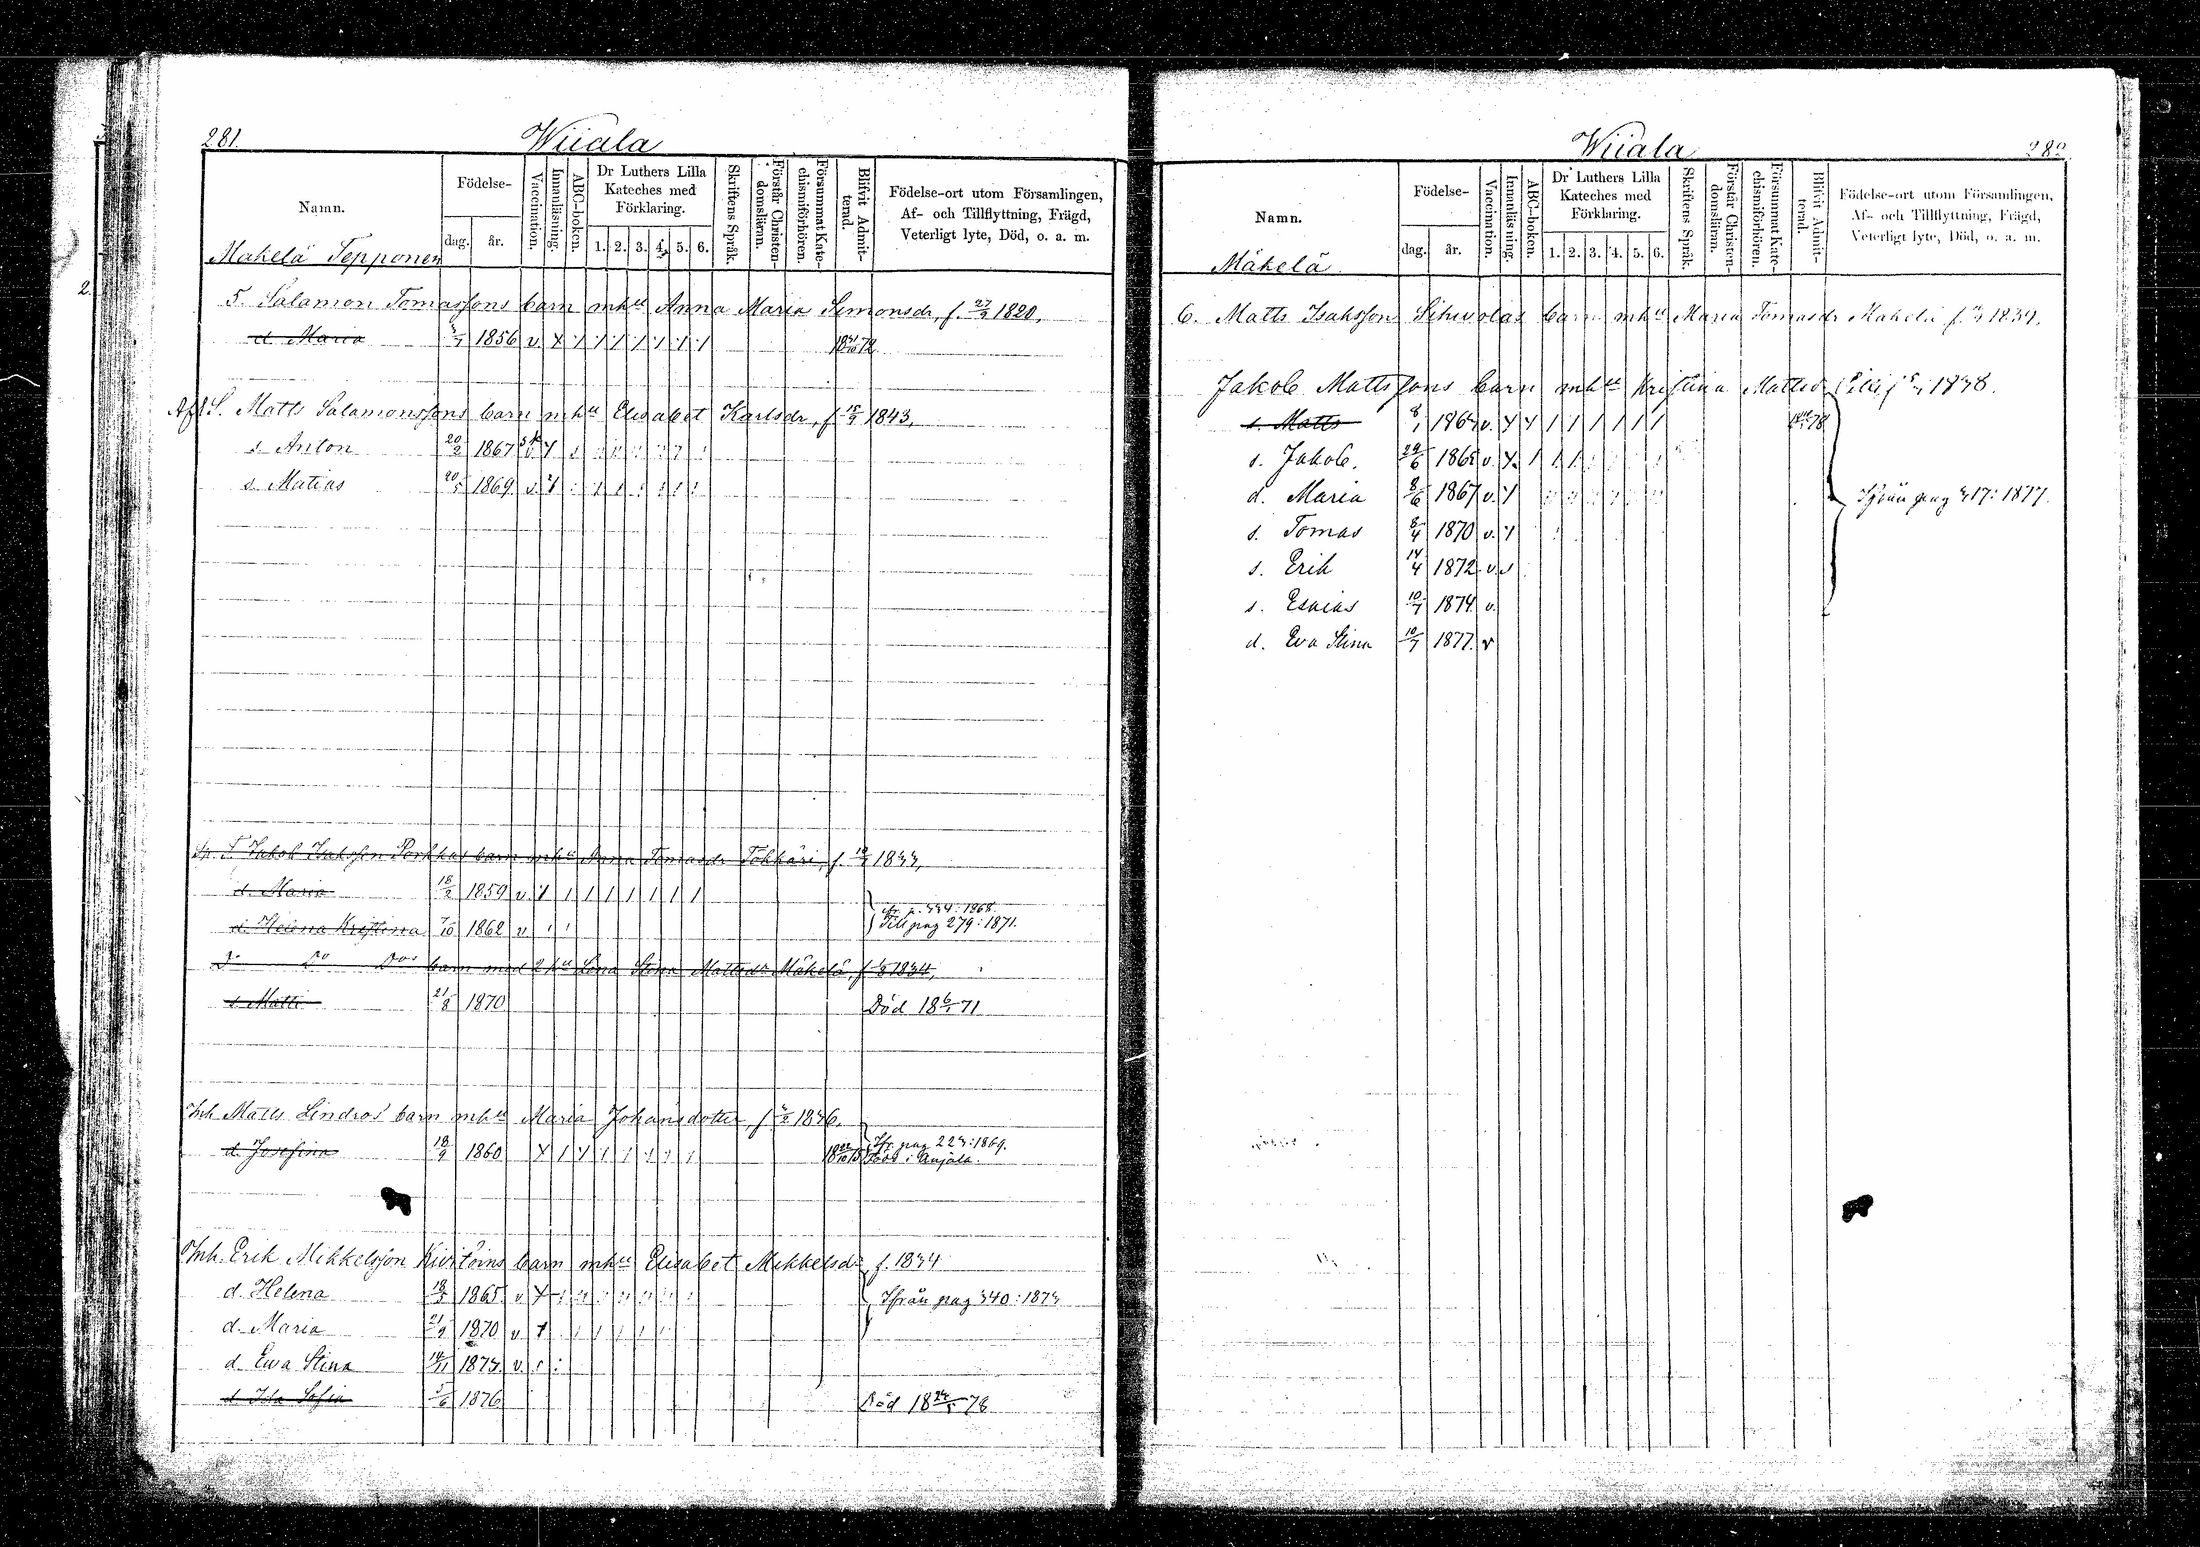 281.
Wiiala
Namn.
Födelse-
dag. år.
Vaccination.
Innanläsning.
ABC-boken.
Dr Luthers Lilla Kateches med Förklaring.
1. 2. 3. 4. 5. 6.
Skriftens Språk.
Förstår Christendomsläran.
Försummat Katechismiförhören.
Blifvit Admitterad.
Födelse-ort utom Församlingen, Af- och Tillflyttning, Frägd, Veterligt lyte, Död, o. a. m.
Makelä Tepponen
5. Salamon Tomassons barn mhu Anna Maria Simonsdr, f. 27/3 1820,
d. Maria 1856 v.
S. Matts Salamonssons barn mhu Elisabet Karlsdr, f. 1843,
s. Anton 20/2 1867
s. Matias 1869
Jakob Isaksson Porkkas barn mhu Anna Tomasdr Tökkäri, f. 1833,
d. Maria 18/2 1859 v.
d. Helena Kristina 7/10 1862 v
Till pag 279: 1871.
Do Dos barn med 2 hu Lena Stina Mattsdr Mäkelä, f. 1834,
s. Matti 21/8 1870 Död 18 6/1 71
Inh. Matts Lindros' barn mhu Maria Johansdotter, f. 1836.
d. Josefina 18/9 1860
Ifr. pag 223: 1869.
Född i Anjala.
Inh. Erik Mikkelsson Kivitörns barn mhu Elisabet Mikkelsdr f. 1834
d. Helena 1865. v
Ifrån pag 340: 1873
d. Maria 1870 v
d. Ewa Stina 14/11 1873. v.
d. Ida Sofia 5/6 1876 Död 18 78
Wiiala
282
Namn.
Födelse-
dag. år.
Vaccination.
Innanläsning.
ABC-boken.
Dr Luthers Lilla Kateches med Förklaring.
1. 2. 3. 4. 5. 6.
Skriftens Språk.
Förstår Christendomsläran.
Försummat Katechismiförhören.
Blifvit Admitterad.
Födelse-ort utom Församlingen, Af- och Tillflyttning, Frägd, Veterligt lyte, Död, o. a. m.
Mäkelä
6. Matts Isaksson Sihvolas barn mhu Maria Tomasdr Makelä f. 1834.
Jakob Mattssons barn mhu Kristina Mattsdr 1838.
s. Matts 8/1 v.
s. Jakob. 24/6 1865 v.
d. Maria 8/6 1867 v.
Ifrån pag 317: 1877.
s. Tomas 8/4 1870 v.
s. Erik 14/4 1872 v.
s. Esaias 10/7 1874 v.
d. Eva Stina 10/7 1877. v